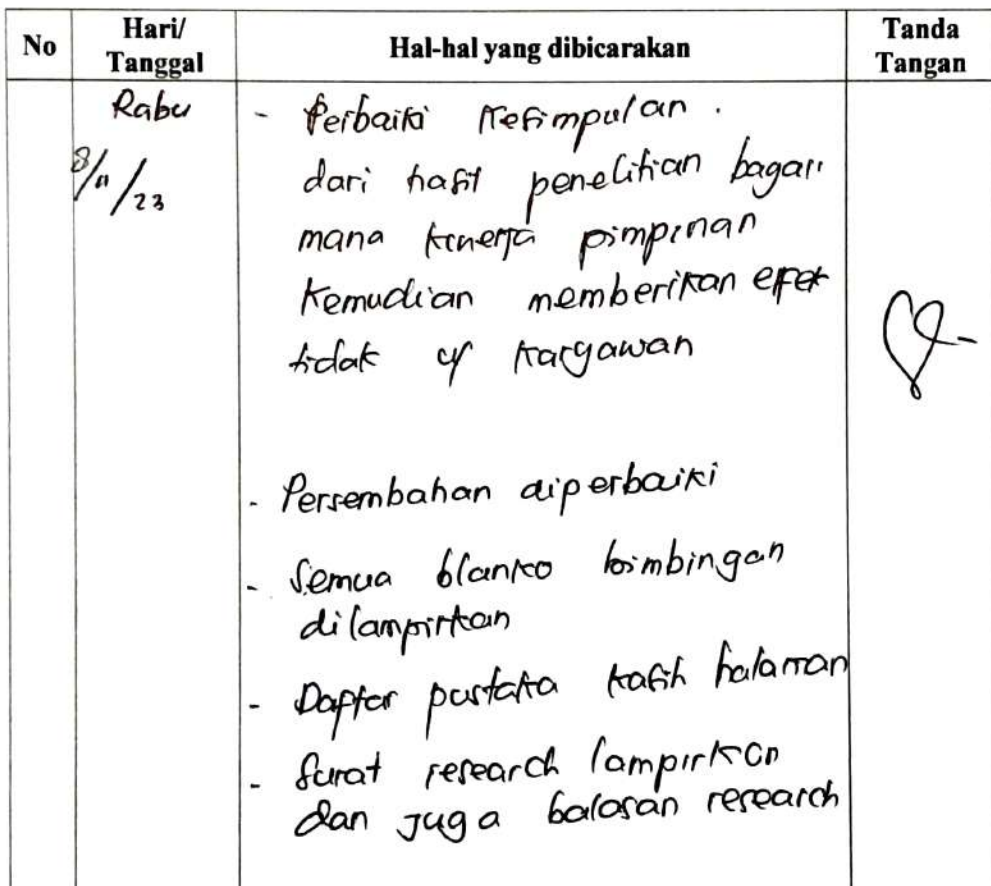 No
Hari/
Tanggal
Hal-hal yang dibicarakan
Tanda
Tangan
Rabu
8/11/23
- Perbaiki Kesimpulan.
dari hasil penelitian bagai
mana kinerja pimpinan
kemudian memberikan efek
tidak y karyawan
- Persembahan diperbaiki
- Semua blanko bimbingan
dilampirkan
- Daftar pustaka kasih halaman
- Surat research lampirkan
dan juga balasan research